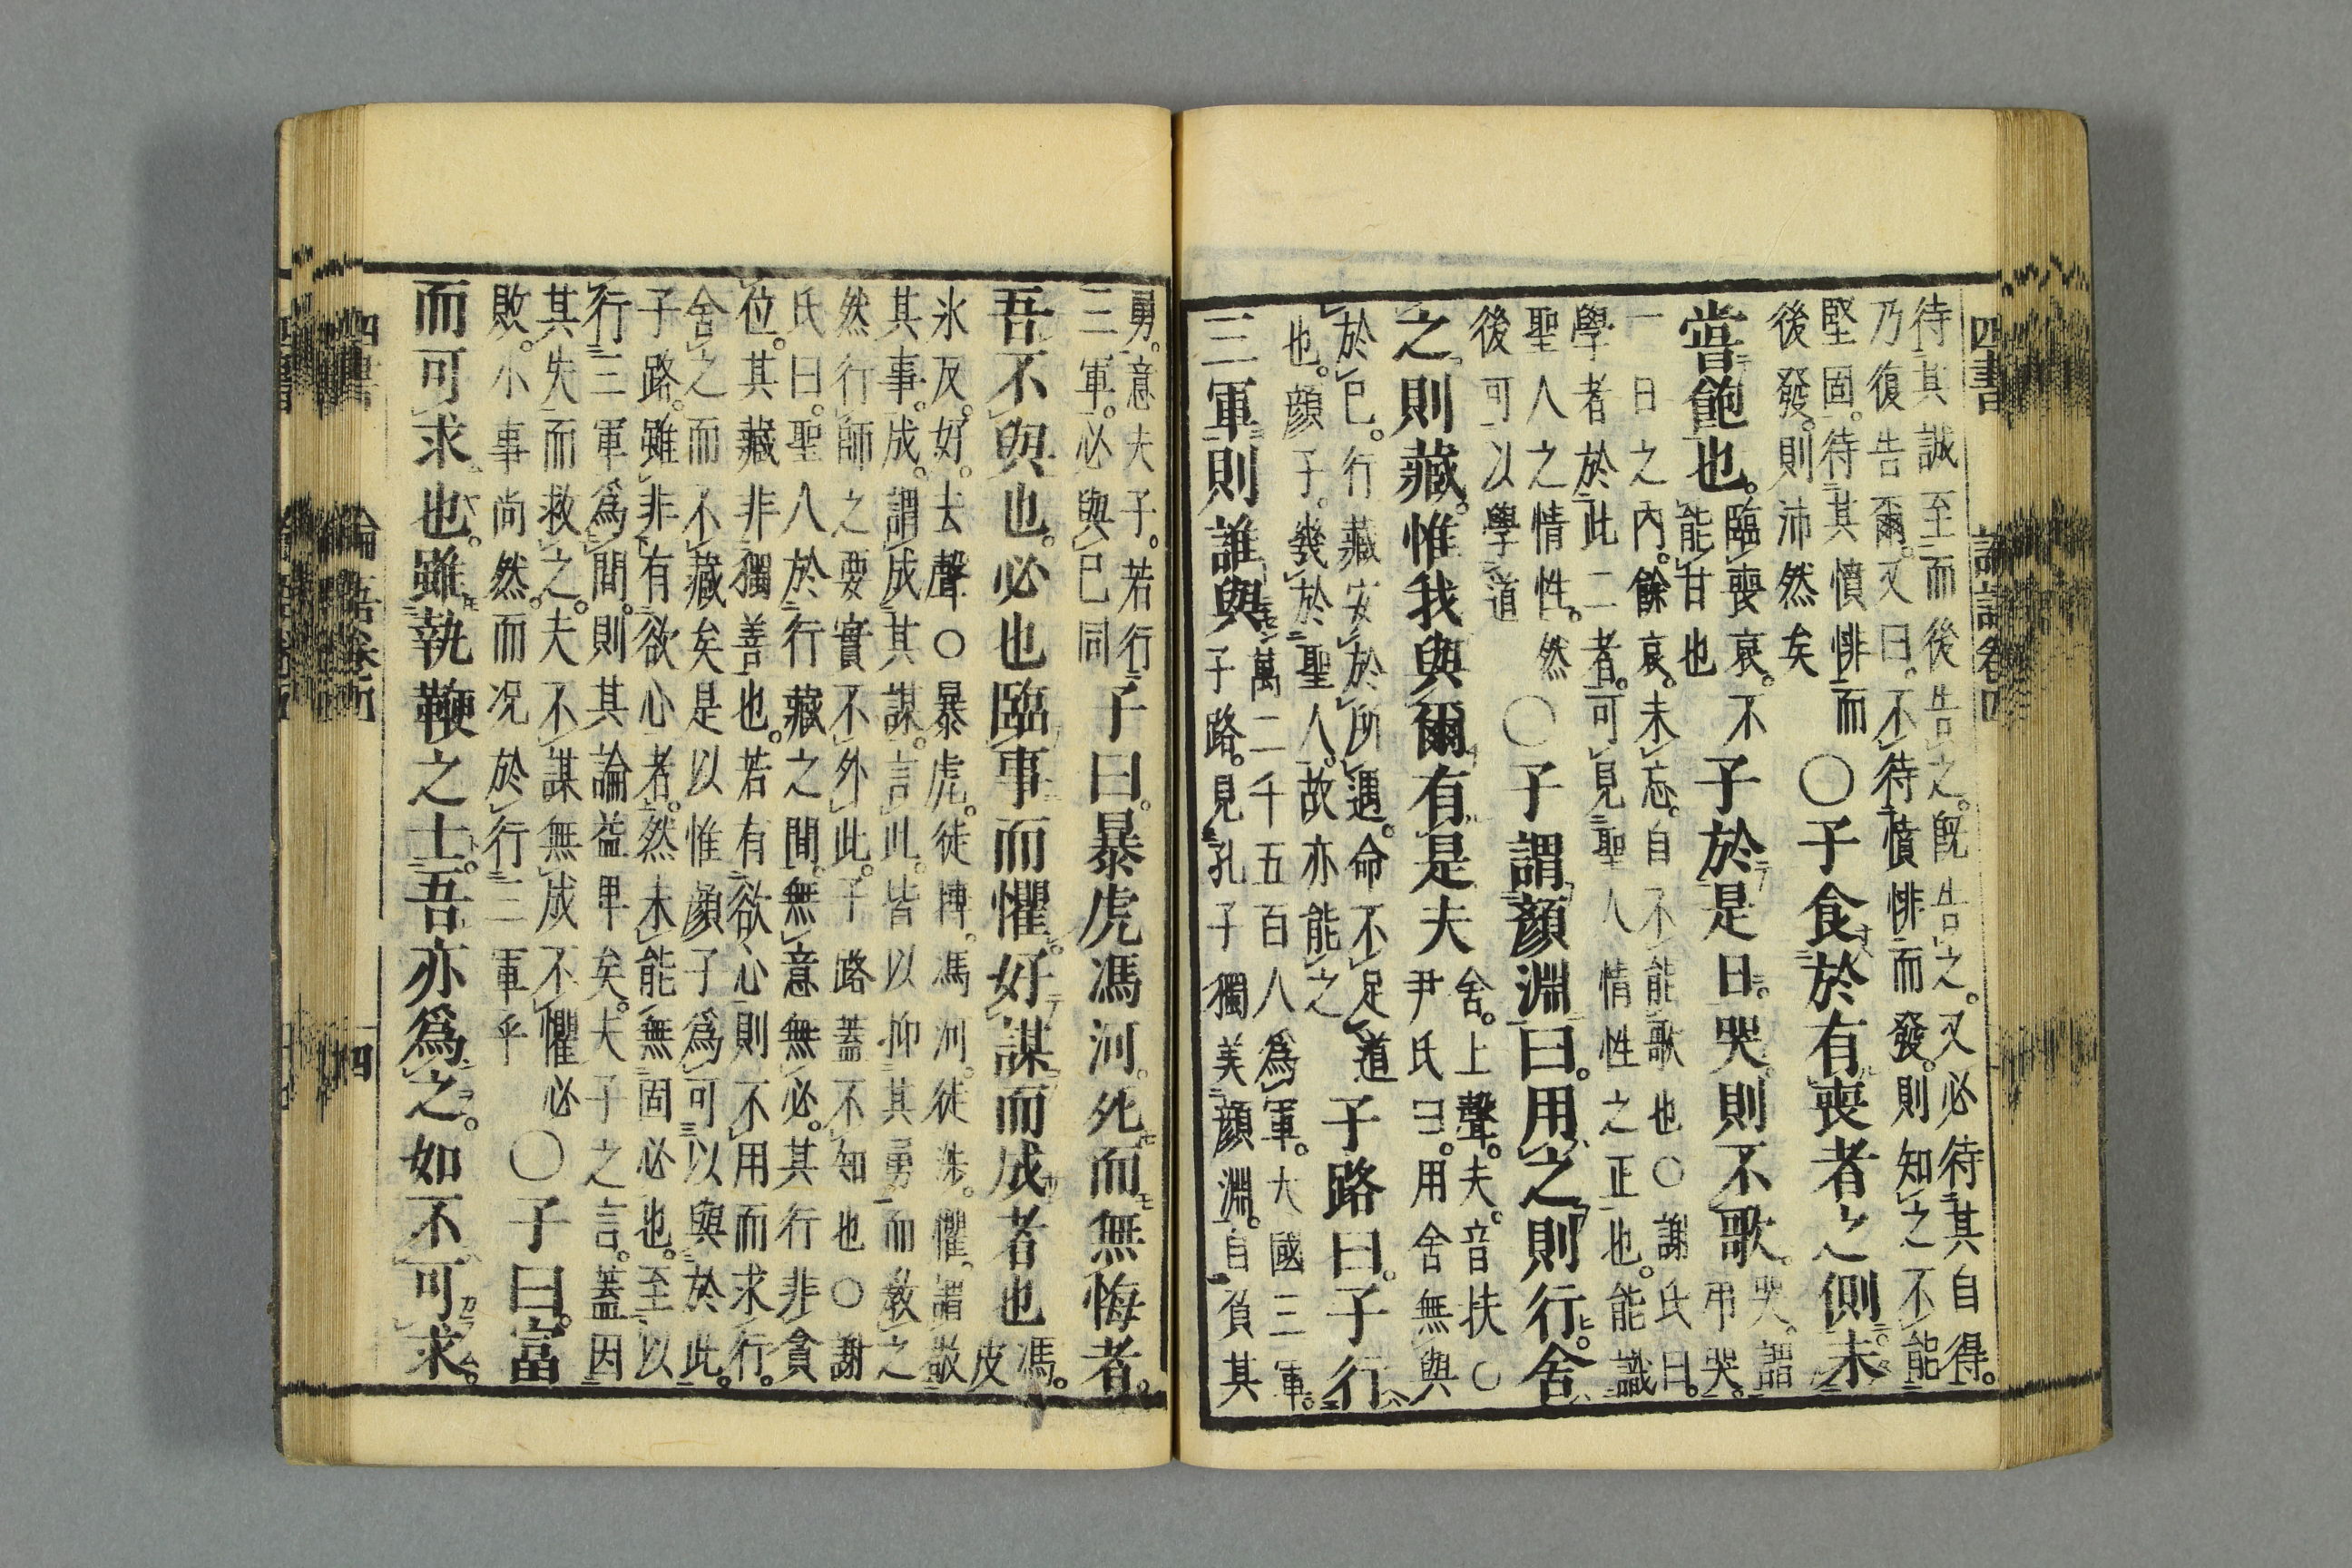 四書 論語卷四
待其誠至而後告之。既告之。又必待其自得。
乃復告爾。又曰。不待憤悱而發。則知之不能
堅固。待其憤悱而
後發。則沛然矣
○子食於有喪者之側。未
嘗飽也。
臨喪哀。不
能甘也
子於是日。哭。則不歌。
哭。謂
弔哭。
一日之內。餘哀。未忘。自不能歌也○謝氏曰。
學者於此二者。可見聖人情性之正也。能識
聖人之情性。然
後可以學道
○子謂顏淵曰。用之則行。舍
之則藏。惟我與爾有是夫
舍。上聲。夫。音扶○
尹氏曰。用舍無與
於已。行藏安於所遇。命不足道
也。顏子。幾於聖人。故亦能之
子路曰。子行
三軍則誰與
萬二千五百人爲軍。大國三軍。
子路。見孔子獨美顏淵。自負其
勇。意夫子。若行
三軍。必與已同
子曰。暴虎馮河。死而無悔者。
吾不與也。必也臨事而懼。好謀而成者也
馮。
皮
氷反。好。去聲○暴虎。徒搏。馮河。徒涉。懼。謂敬
其事。成。謂成其謀。言此。皆以抑其勇。而教之
然行師之要實不外此。子路蓋不知也○謝
氏曰。聖人於行藏之間。無意無必。其行非貪
位。其藏非獨善也。若有欲心則不用而求行。
舍之而不藏矣是以惟顏子爲可以與於此。
子路。雖非有欲心者。然未能無固必也。至以
行三軍爲問。則其論益卑矣。夫子之言。蓋因
其失而救之。夫不謀無成不懼必
敗。小事尚然。而况於行三軍乎
○子曰。富
而可求也。雖執鞭之士。吾亦爲之。如不可求。
四